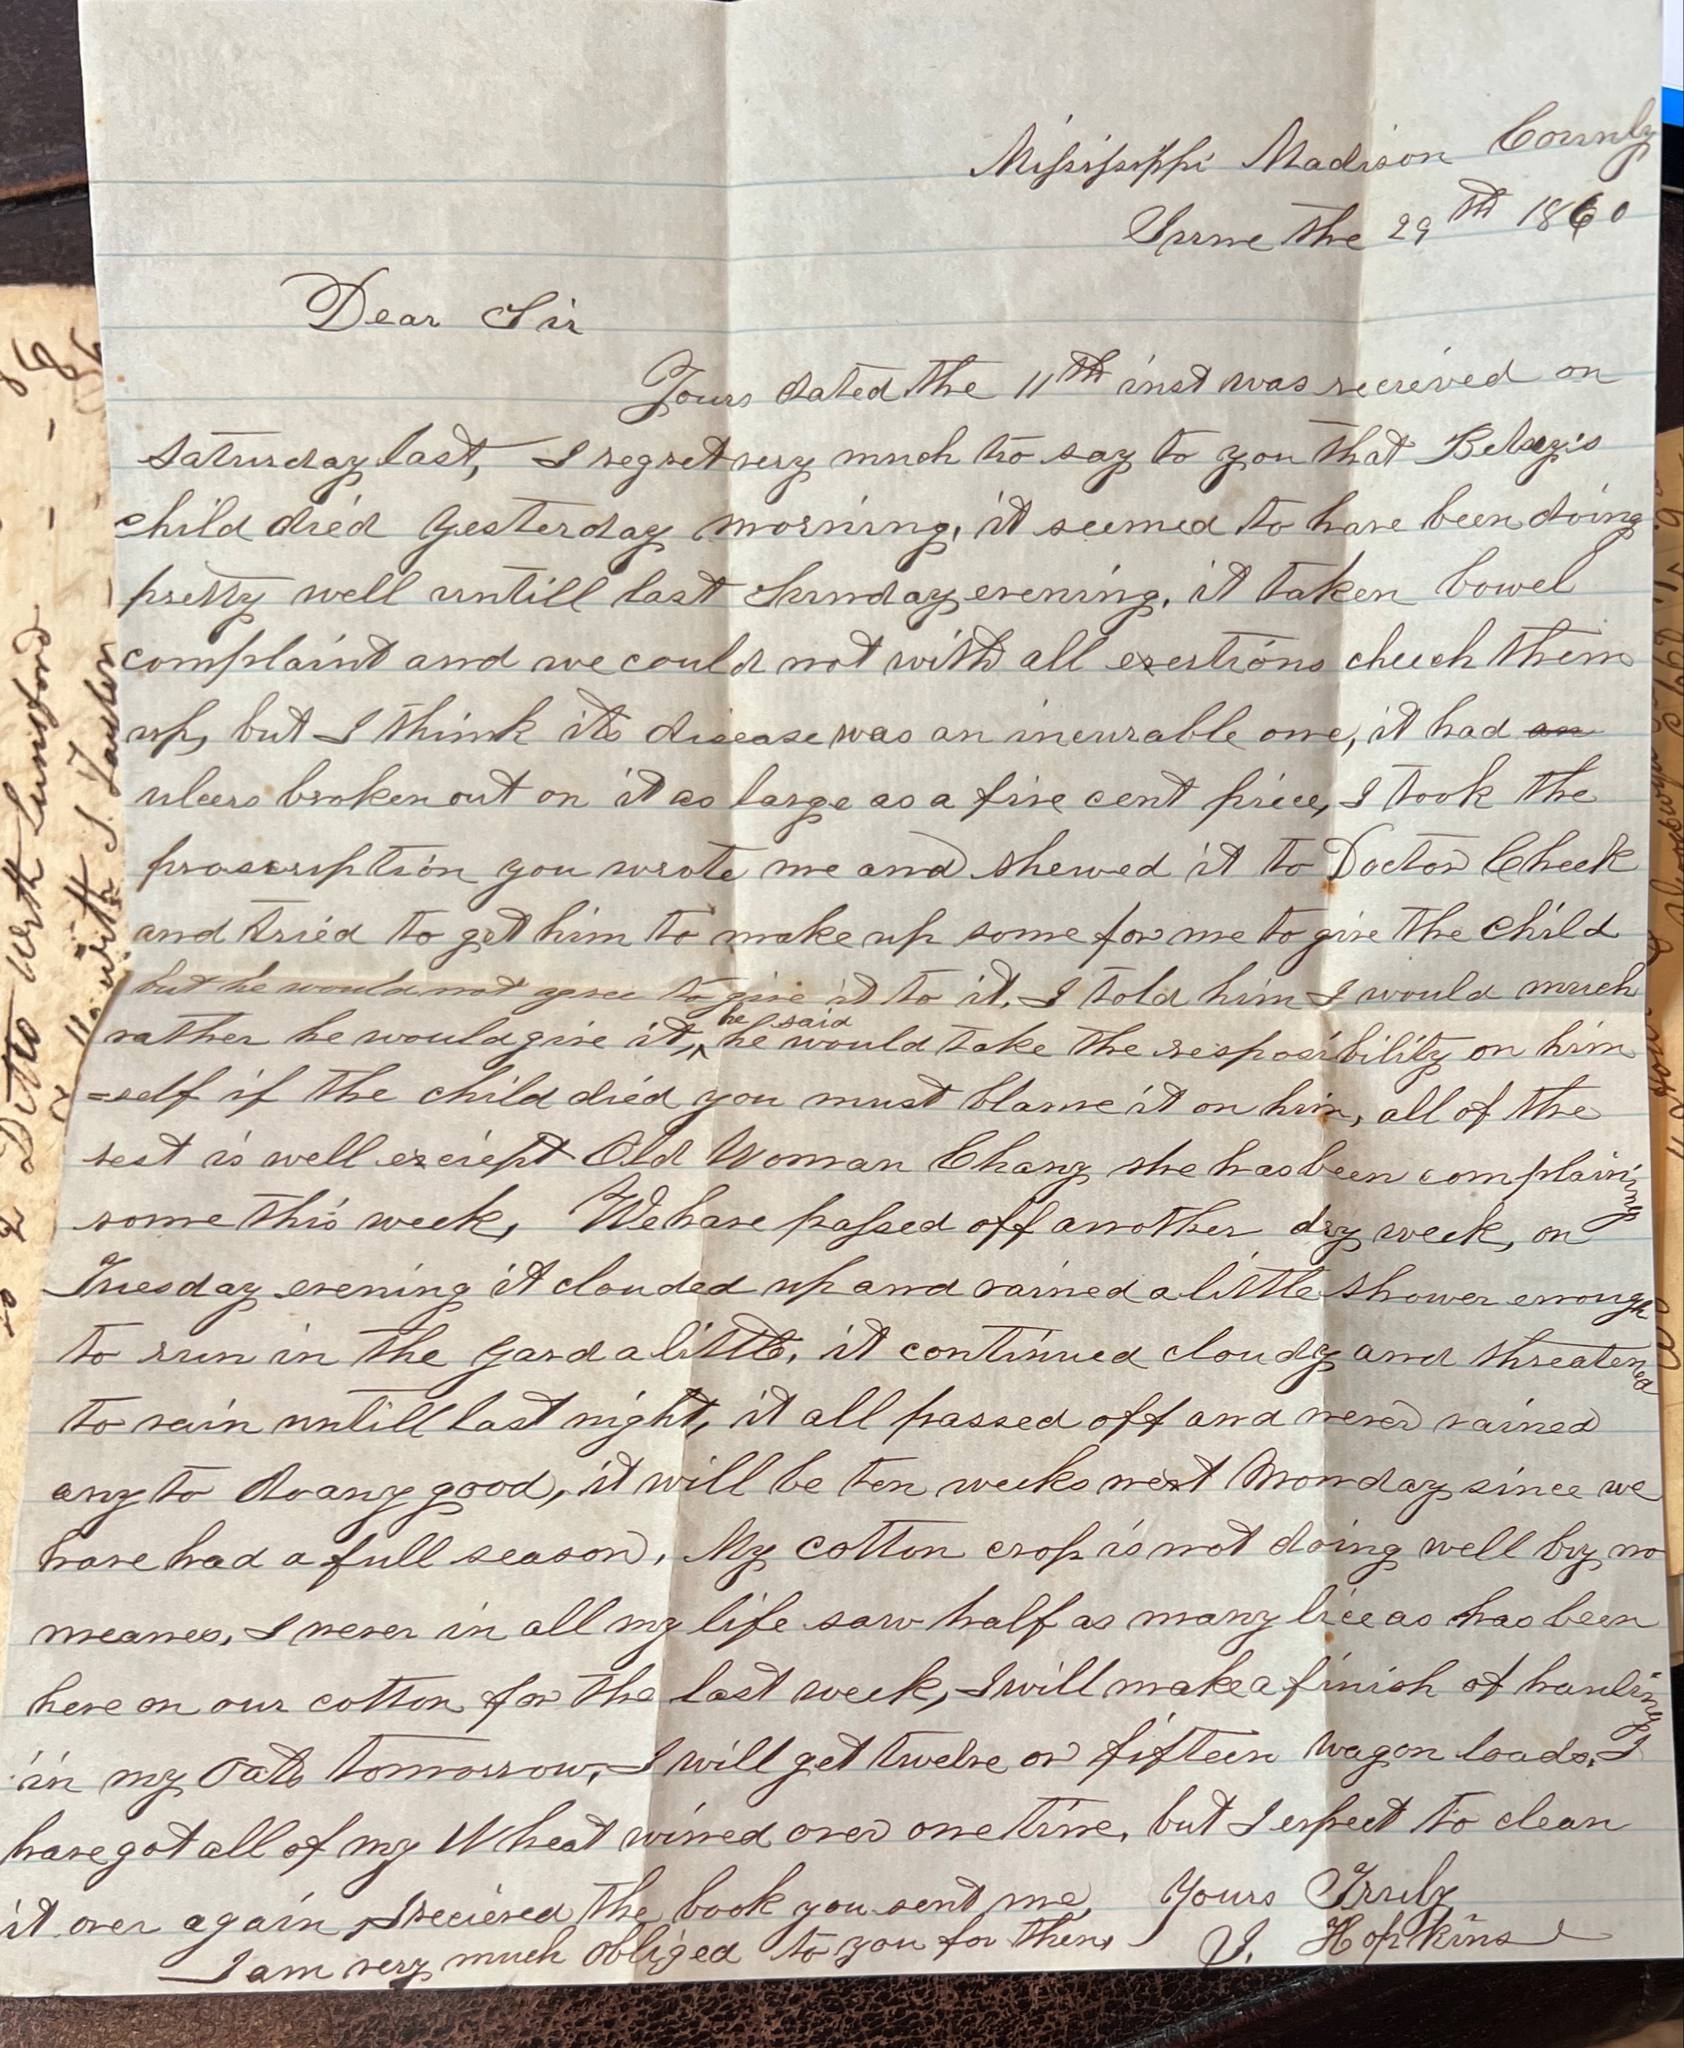 Missisippi Madison County
June the 29th 1860
Dear Sir
Yours dated the 11th inst was recieved on
saturday last, I regret very much to say to you that Betsey's
child died yesterday morning, it seemed to have been doing
pretty well untill last Sunday evening, it taken bowel
complaint and we could not with all exertions cheeck them
up, but I think its disease was an incurable one, it had an
ulcers broken out on it as large as a five cent piece, I took the
proscription you wrote me and shewed it to Doctor Cheek
and tried to get him to make up some for me to give the child
but he would not agree to give it to it, I told him I would much
rather he would give it, he said he would take the resposibility on him
=self if the child died you must blame it on him, all of the
rest is well exciept Old Woman Chany she has been complaining
some this week, We have passed off another dry week, on
Tuesday evening it clouded up and rained a little shower enough
to run in the yard a little, it continued cloudy and threatened
to rain untill last night, it all passed off and never rained
any to do any good, it will be ten weeks next Monday since we
have had a full season, My cotton crop is not doing well by no
meanes, I never in all my life saw half as many lice as has been
here on our cotton for the last week, I will make a finish of hauling
in my Oats tomorrow, I will get twelve or fifteen wagon loads, I
have got all of my Wheat wined over one time, but I expect to clean
it over again, I recieved the book you sent me, Yours Truly
I am very much obliged to you for them, J. Hopkins
Ditto with Lunsford
with J.